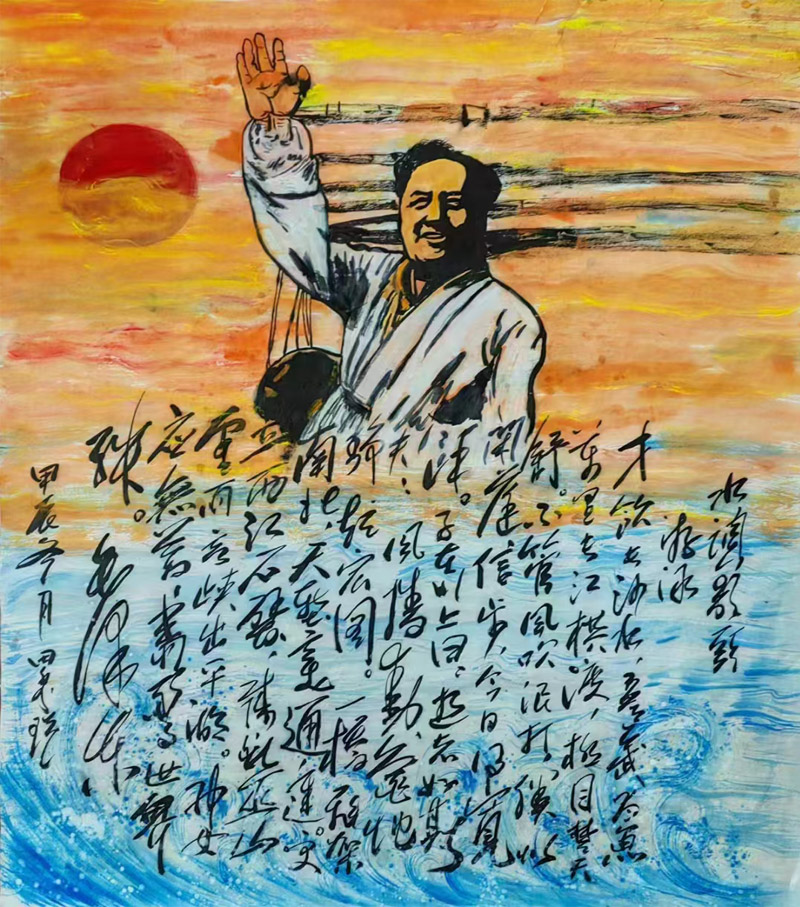 水調歌頭
游泳
才饮长沙水，又食武昌鱼
萬里长江横渡，极目楚天
舒。不管風吹浪打，勝似
闲庭信步，今日得寬
馀。子在川上曰：逝者如斯
夫：風樯動，龟蛇
静，起宏图。一橋飛架
南北，天堑变通途。更
立西江石壁，截断巫山
雲雨，高峡出平湖。神女
应無恙，當惊世界
殊。毛泽东
甲辰冬月 田